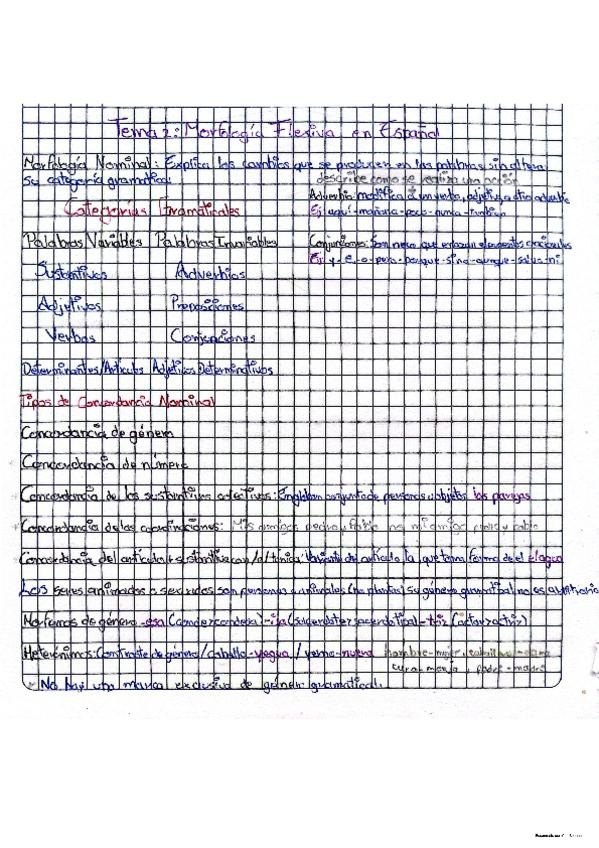 Tema 2: Morfología Flexiva en Español
Morfología Nominal: Explica los cambios que se producen en las palabras sin alterar
su categoría gramatical
describe como se realiza una acción
Adverbio: modifica a un verbo, adjetivo, a otro adverbio
Ej: aquí-mañana-poco-nunca-también
Categorías Gramaticales
Palabras Variables Palabras Invariables
Conjunciones: Son nexos que enlazan elementos
Ej: y-e-o-pero-porque-sino-aunque-salvo-ni
Sustantivos Adverbios
Adjetivos Preposiciones
Verbos Conjunciones
Determinantes/Artículos Adjetivos Determinativos
Tipos de Concordancia Nominal
Concordancia de género
Concordancia de número
Concordancia de los sustantivos colectivos: Engloban conjunto de personas u objetos las parejas
Concordancia de las coordinaciones: Mis amigos pedro y pablo
Concordancia del artículo + sustantivo con /a/ tónica: Variante del artículo la que toma forma de el el agua
Los seres animados o sexuados son personas o animales (no plantas) su género gramatical no es arbitrario
Morfemas de género -esa (conde>condesa) -isa (sacerdote>sacerdotisa) -triz (actor>actriz)
Heterónimos: Contraste de género / caballo-yegua / yerno-nuera hombre-mujer,
cura-monja, padre-madre
- No hay una marca exclusiva de género gramatical.